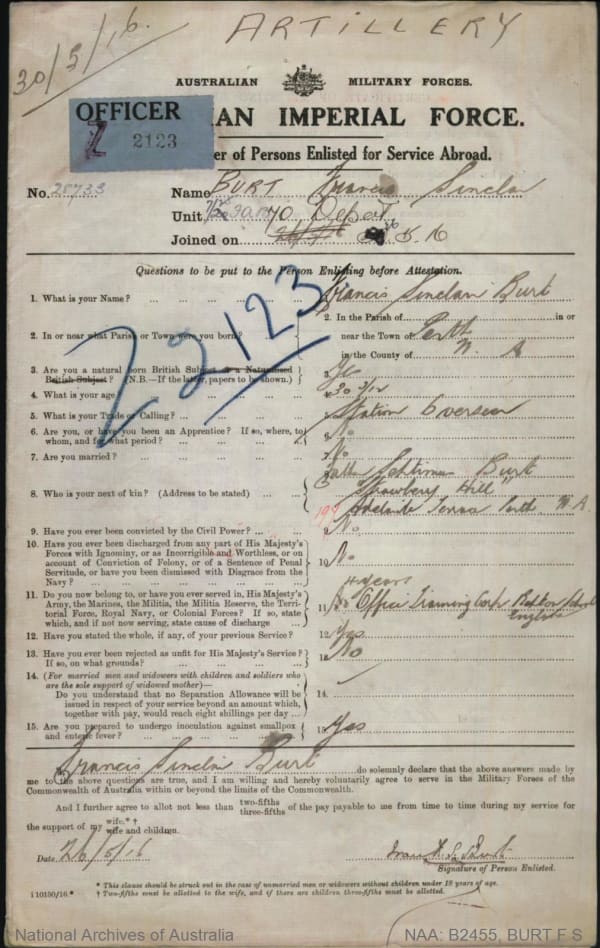 30/5/16.
ARTILLERY
AUSTRALIAN MILITARY FORCES.
OFFICER
2123
IAN IMPERIAL FORCE.
er of Persons Enlisted for Service Abroad.
No. 28733 Name BURT Francis Sinclair
Unit 70 Depot
Joined on 5.16
Questions to be put to the Person Enlisting before Attestation.
1. What is your Name? ... Francis Sinclair Burt
2. In or near what Parish or Town were you born? 2. In the Parish of in or
near the Town of Perth
in the County of W. A
3. Are you a natural born British Subject or a Naturalised
British Subject? (N.B.—If the latter, papers to be shown.) 3. Yes
4. What is your age 4. 30 3/12
5. What is your Trade or Calling? 5. Station Overseer
6. Are you, or have you been an Apprentice? If so, where, to
whom, and for what period? 6. No
7. Are you married? 7. No
8. Who is your next of kin? (Address to be stated) Father Septimus Burt
"Strawberry Hill"
Adelaide Terrace Perth W.A.
9. Have you ever been convicted by the Civil Power? 9. No
10. Have you ever been discharged from any part of His Majesty's
Forces with Ignominy, or as Incorrigible and Worthless, or on
account of Conviction of Felony, or of a Sentence of Penal
Servitude, or have you been dismissed with Disgrace from the
Navy? 10. No
11. Do you now belong to, or have you ever served in, His Majesty's
Army, the Marines, the Militia, the Militia Reserve, the Terri-
torial Force, Royal Navy, or Colonial Forces? If so, state
which, and if not now serving, state cause of discharge 11. years
Officer Training Corp School
England
12. Have you stated the whole, if any, of your previous Service? 12. Yes
13. Have you ever been rejected as unfit for His Majesty's Service?
If so, on what grounds? 13. No
14. (For married men and widowers with children and soldiers who
are the sole support of widowed mother)—
Do you understand that no Separation Allowance will be
issued in respect of your service beyond an amount which,
together with pay, would reach eight shillings per day 14.
15. Are you prepared to undergo inoculation against smallpox
and enteric fever? 15. Yes
22123
I, Francis Sinclair Burt do solemnly declare that the above answers made by
me to the above questions are true, and I am willing and hereby voluntarily agree to serve in the Military Forces of the
Commonwealth of Australia within or beyond the limits of the Commonwealth.
And I further agree to allot not less than two-fifths three-fifths of the pay payable to me from time to time during my service for
the support of my wife.* † wife and children.
Date 26/5/16
Signature of Person Enlisted.
* This clause should be struck out in the case of unmarried men or widowers without children under 18 years of age.
† Two-fifths must be allotted to the wife, and if there are children three-fifths must be allotted.
i 10150/16.*
National Archives of Australia
NAA: B2455, BURT F S